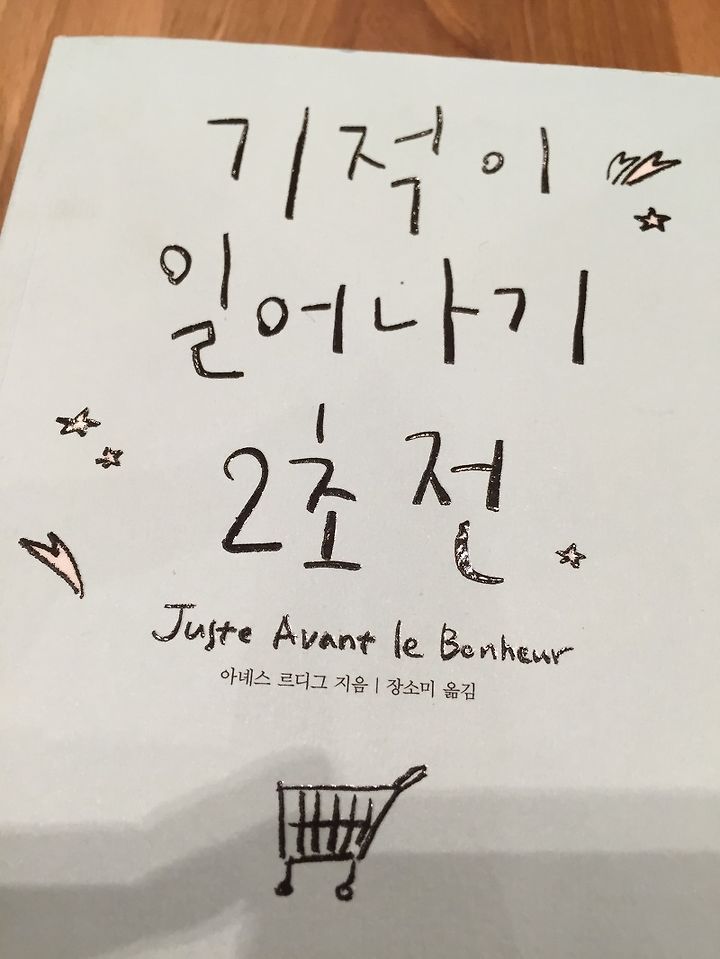 기적이
일어나기
2초 전
Juste Avant le Bonheur
아녜스 르디그 지음 | 장소미 옮김